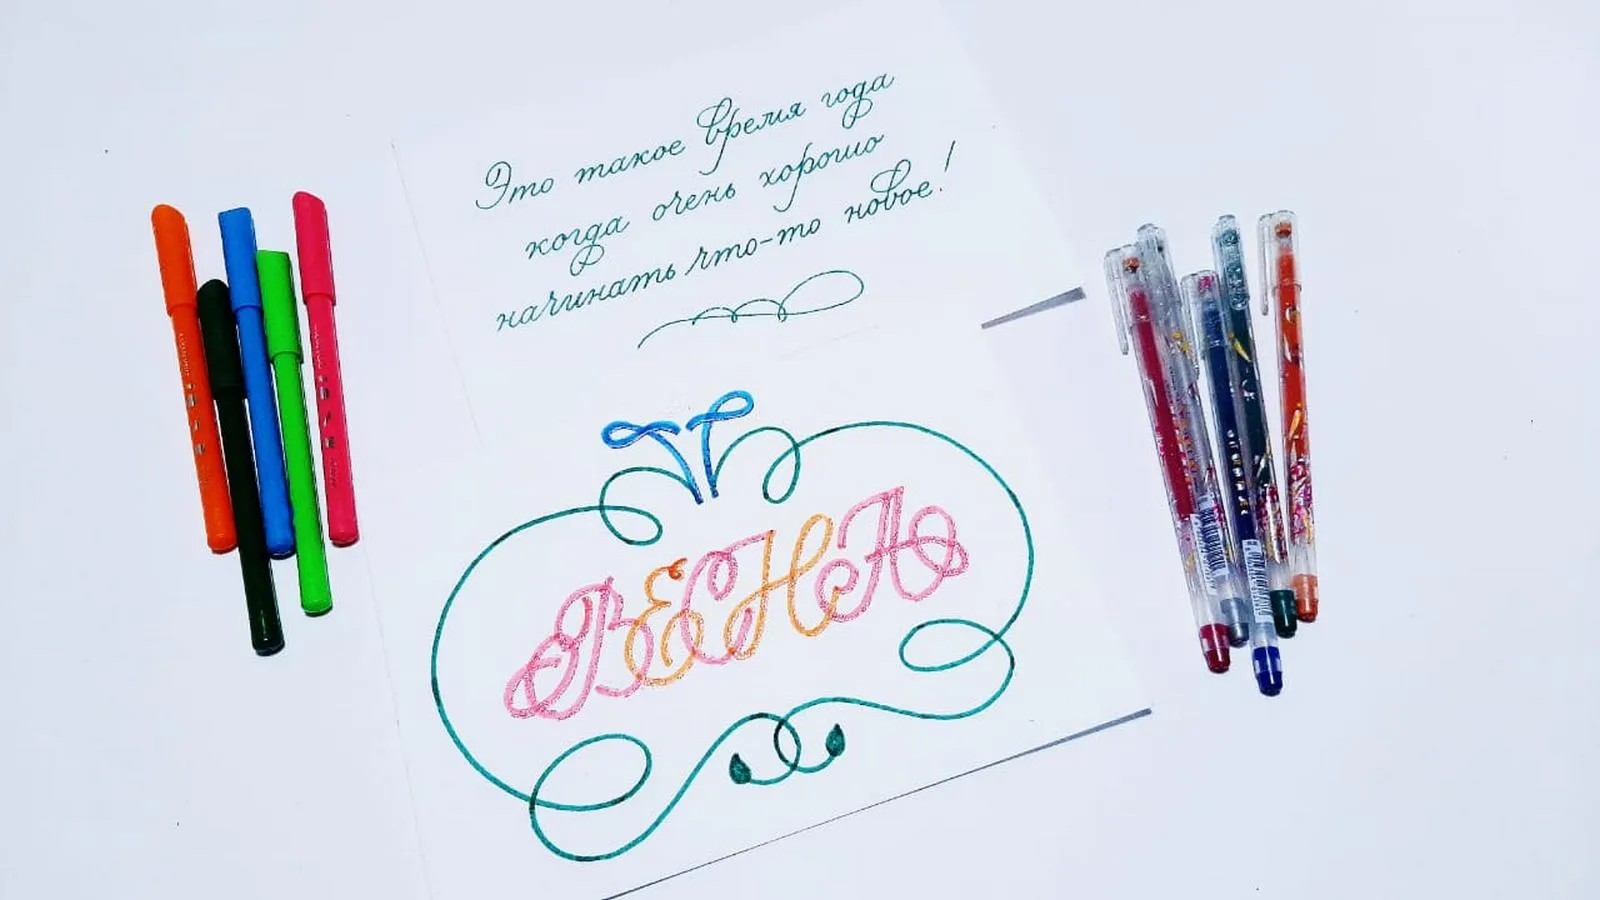 Это такое время года
когда очень хорошо
начинать что-то новое!
ВЕСНА